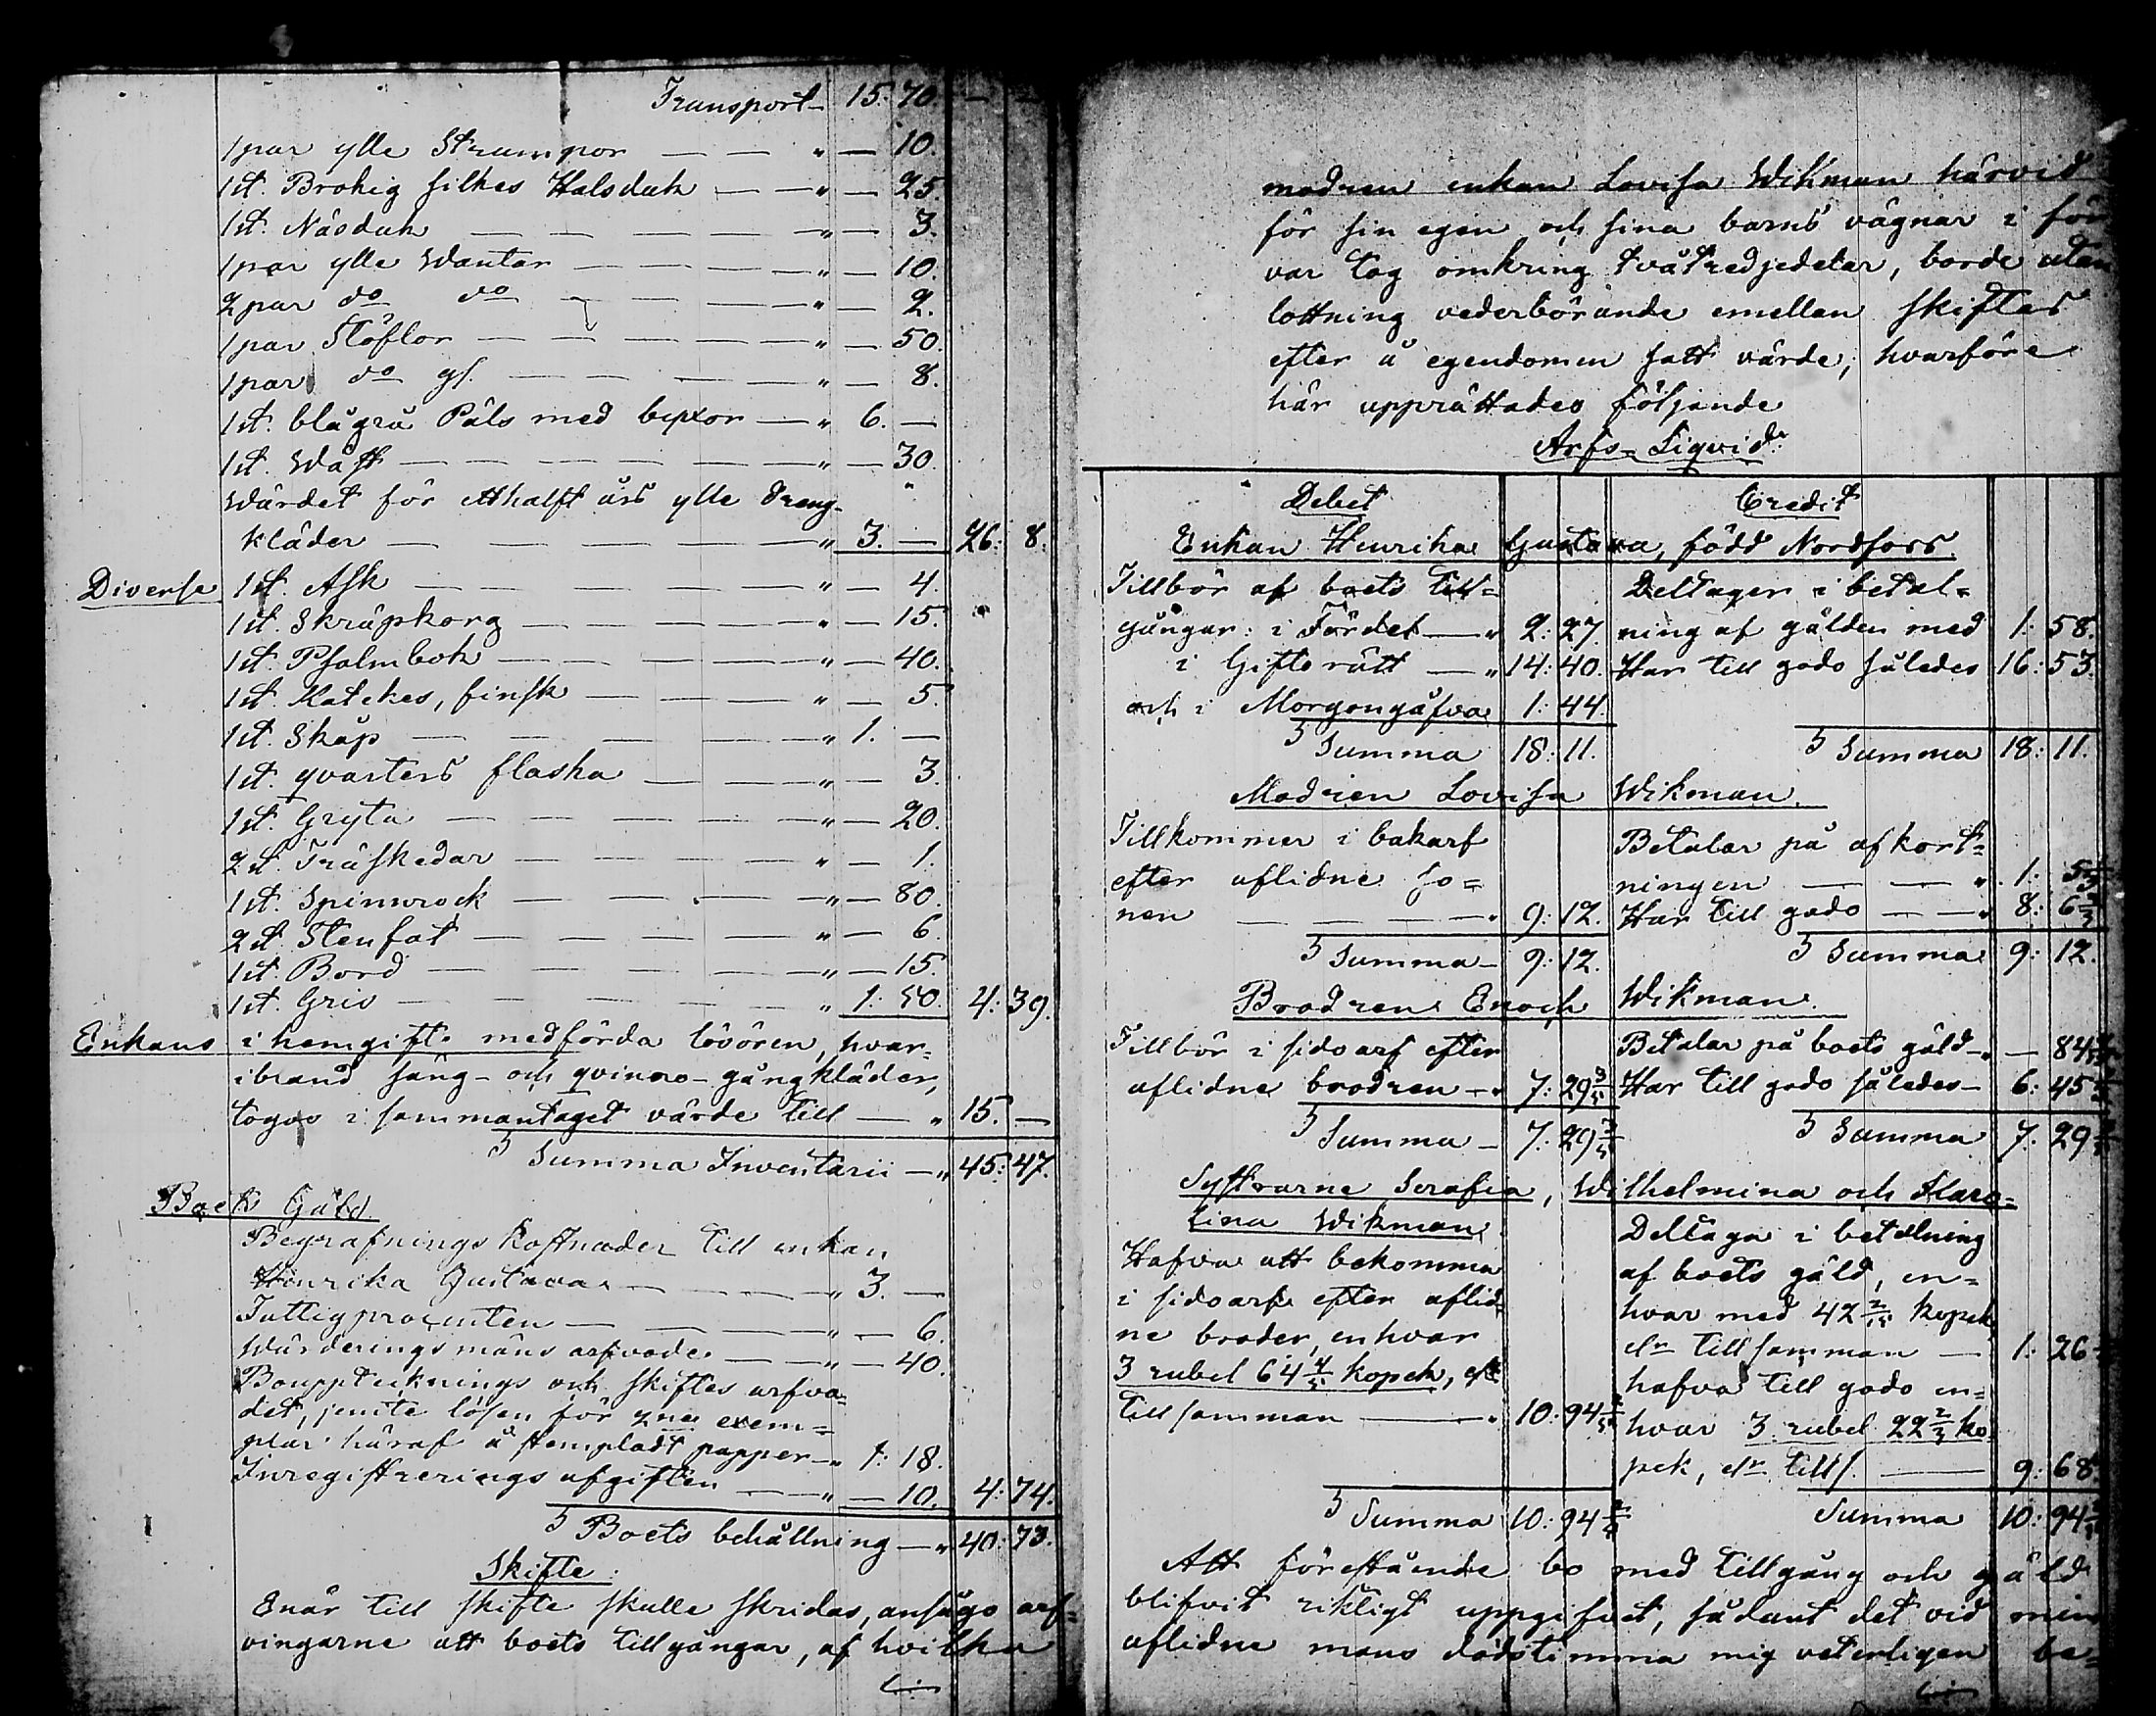 Transport 15. 70. — —
1 par ylle Strumpor — — " — 10.
1 st. Brokig silkes Halsduk — — " — 25.
1 st. Näsduk — — — — — " — 3.
1 par ylle Wantar — — — — " — 10.
2 par do do — — — — " — 2.
1 par Stöflor — — — — — " — 50.
1 par do gl. — — — — " — 8.
1 st. blågrå Päls med byxor — " 6. —
1 st. Wäst — — — — — — " — 30.
Wärdet för ett halft års ylle dräng-
kläder — — — — — " 3. — 26: 8.
Diverse 1 st. Ask — — — — — " — 4.
1 st. Skräpkorg — — — — " — 15.
1 st. Psalmbok — — — — " — 40.
1 st. Katekes, finsk — — — " — 5.
1 st. Skåp — — — — — " 1. —
1 st. qvarters flaska — — — " — 3.
1 st. Gryta — — — — — " — 20.
2 st. Träskedar — — — — " — 1.
1 st. Spinnrock — — — — " — 80.
2 st. Stenfat — — — — " — 6.
1 st. Bord — — — — — " — 15.
1 st. Gris — — — — — " 1: 50. 4: 39.
Enkans i hemgift medförda lösören, hvar-
ibland säng- och qvinno-gångkläder,
togos i sammantaget värde till — " 15. —
Summa Inventarii — " 45: 47.
Boets Gäld.
Begrafnings kostnader till enkan
Henrika Gustava — — — " 3. —
Fattigprocenten — — — — " — 6.
Wärderingsmäns arfvode — — " — 40.
Bouppteknings och skiftes arfvo-
det, jemte lösen för 2ne exem-
plar häraf å stempladt papper — " 1: 18.
Inregistrerings afgiften — — " — 10. 4: 74.
Boets behållning — " 40: 73.
Skifte:
Enär till skifte skulle skridas, ansågo arf-
vingarne att boets tillgångar, af hvilka
modren enkan Lovisa Wikman härvid
för sin egen och sina barns vägnar i för
var tog omkring tvåtredjedelar, borde utan
lottning vederbörande emellan skiftas
efter å egendomen satt värde; hvarföre
här upprättades följande
Arfs-Liqvid:
Debet Credit
Enkan Henrika Gustava, född Nordfors.
Tillbör af boets till- Deltager i betal-
gångar: i Fördel — " 2: 27. ning af gälden med 1: 58.
i Giftorätt — " 14: 40. Har till godo således 16: 53.
och i Morgongåfva 1: 44.
Summa 18: 11. Summa 18: 11.
Modren Lovisa Wikman.
Tillkommer i bakarf Betalar på afkort-
efter aflidne so- ningen — — " 1: 5 1/3
nen — — — — " 9: 12. Har till godo — — " 8: 6 2/3
Summa — 9: 12. Summa 9: 12.
Brodren Enoch Wikman.
Tillbör i sidoarf efter Betalar på boets gäld — " — 84
aflidne brodren — " 7: 29 3/5 Har till godo således — 6: 45
Summa — 7: 29 3/5 Summa 7: 29
Systrarne Serafia, Wilhelmina och Karo-
lina Wikman.
Deltaga i betalning
Hafva att bekomma af boets gäld, en-
i sidoarf efter aflid- hvar med 42 2/15 kopek,
ne broder, enhvar elr tillsamman — 1: 26
3 rubel 64 4/5 kopek, elr hafva till godo en-
tillsamman — — " 10: 94 2/5 hvar 3 rubel 22 2/3 ko-
pek, elr tills. — 9: 68
Summa 10: 94 2/5 Summa 10: 94
Att förestående bo med tillgång och gäld
blifvit riktigt uppgifvet, sådant det vid min
aflidne mans dödstimma mig veterligen be-